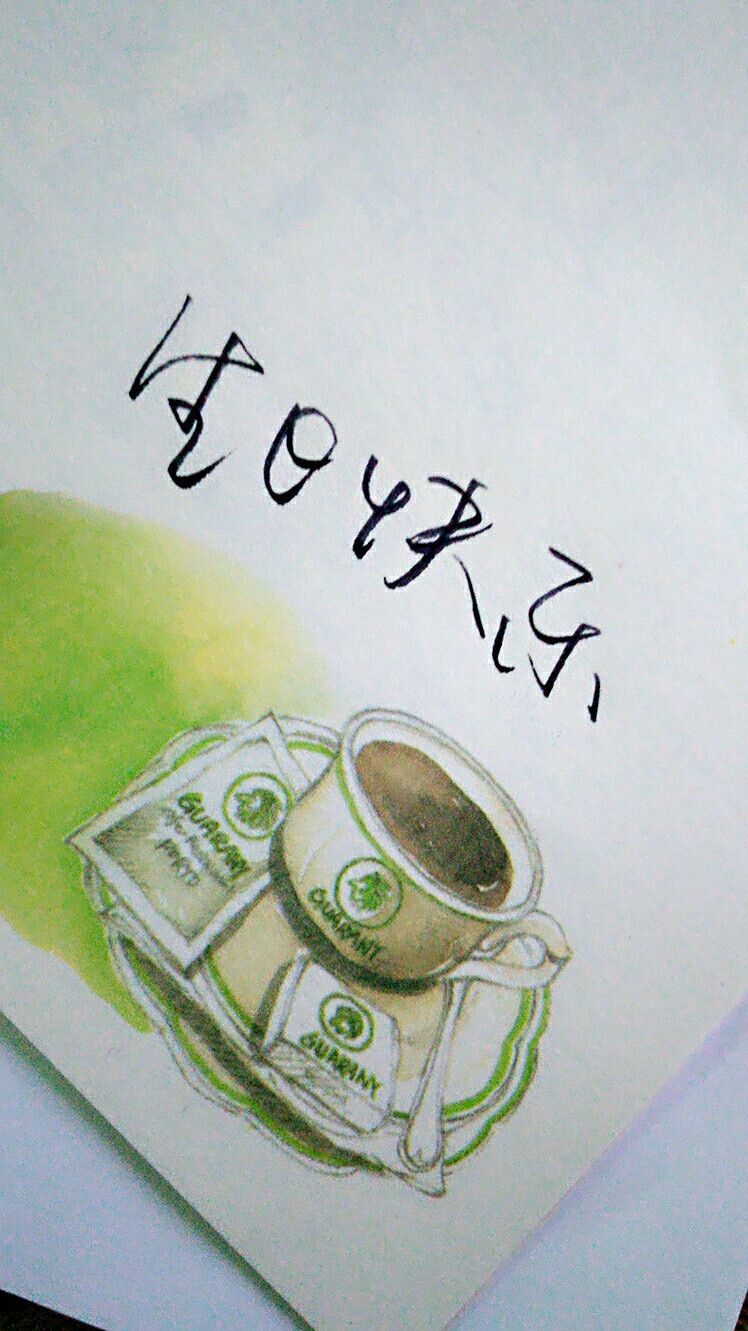 生日快乐
GUARANY
PORTO
GUARANY
GUARANY